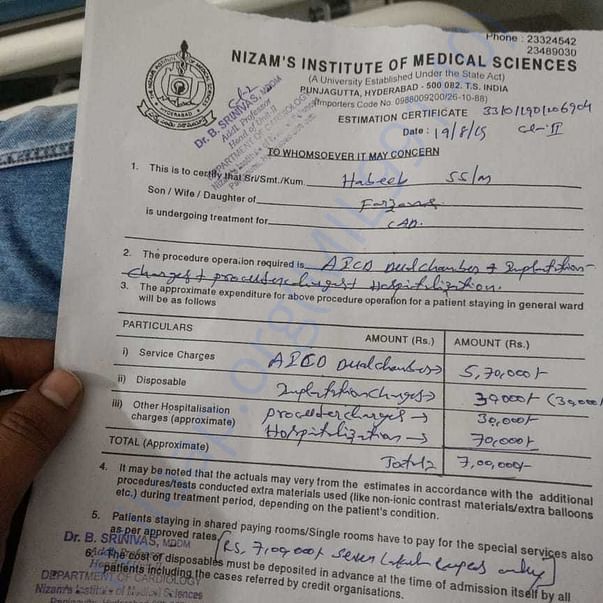 Phone : 23324542
23489030
NIZAM'S INSTITUTE OF MEDICAL SCIENCES
(A University Established Under the State Act)
PUNJAGUTTA, HYDERABAD - 500 082. T.S. INDIA
(Importers Code No. 0988009200/26-10-88)
ESTIMATION CERTIFICATE
Date : 19/8/
Dr. B. SRINIVAS, MDDM
Addl. Professor
DEPARTMENT OF CARDIOLOGY
TO WHOMSOEVER IT MAY CONCERN
1. This is to certify that Sri/Smt./Kum. Habeeb 55/M
Son / Wife / Daughter of
is undergoing treatment for CAD.
2. The procedure operation required is AICD Dual chamber + Implantation
charges + procedure charges + Hospitalization.
3. The approximate expenditure for above procedure operation for a patient staying in general ward
will be as follows
PARTICULARS AMOUNT (Rs.) AMOUNT (Rs.)
i) Service Charges AICD Dual chamber → 5,70,000/-
ii) Disposable Implantation charges → 30,000/- (30,000/-
iii) Other Hospitalisation
charges (approximate) procedure charges → 30,000/-
Hospitalization → 70,000/-
TOTAL (Approximate) Total 7,00,000/-
4. It may be noted that the actuals may very from the estimates in accordance with the additional
procedures/tests conducted extra materials used (like non-ionic contrast materials/extra balloons
etc.) during treatment period, depending on the patient's condition.
5. Patients staying in shared paying rooms/Single rooms have to pay for the special services also
as per approved rates. (Rs. 7,00,000/- seven lakh rupees only)
Dr. B. SRINIVAS, MDDM
6. The cost of disposables must be deposited in advance at the time of admission itself by all
patients including the cases referred by credit organisations.
DEPARTMENT OF CARDIOLOGY
Nizam's Institute of Medical Sciences